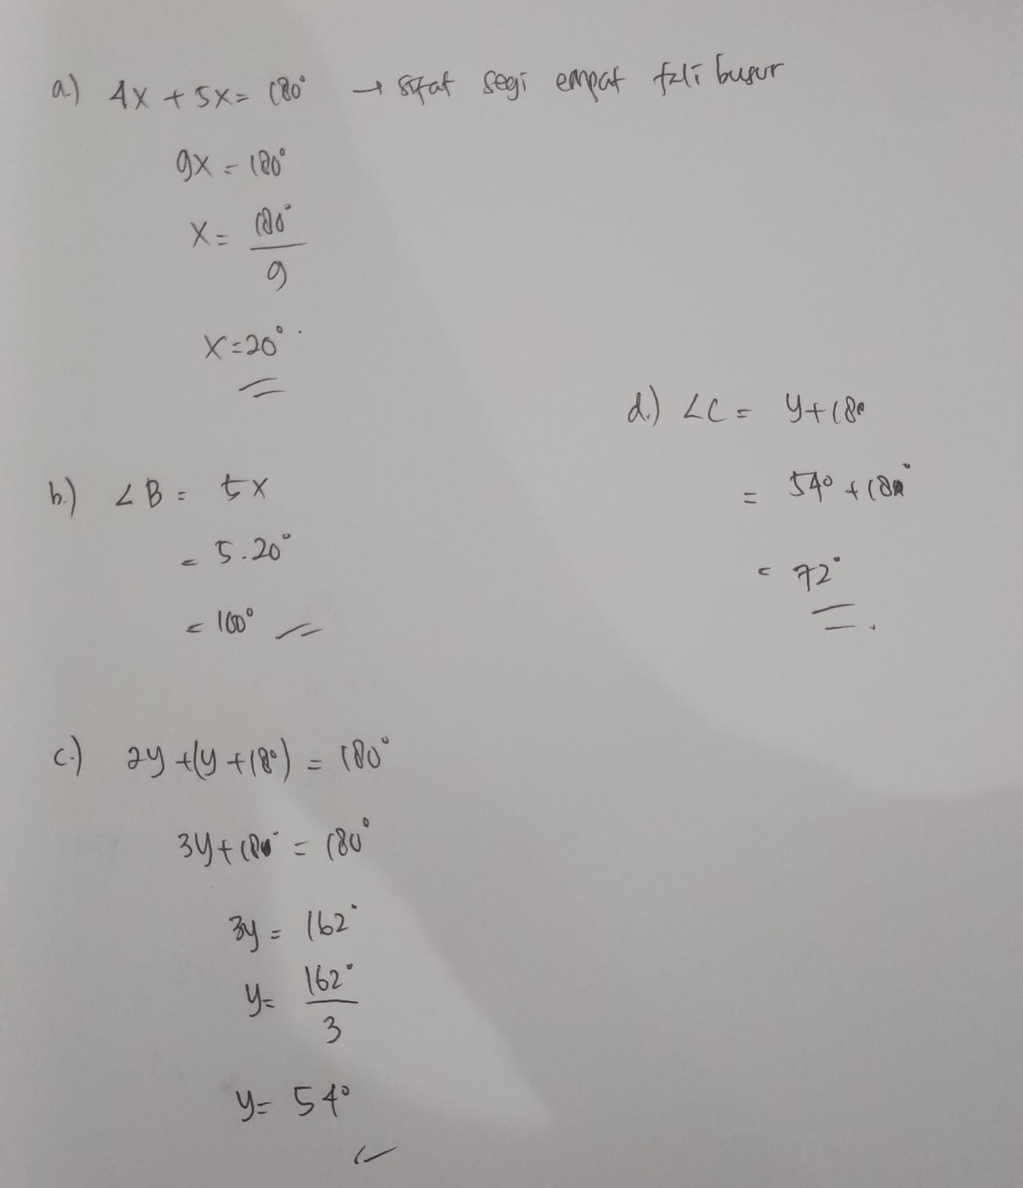 a.) 4x + 5x = 180° → sifat segi empat tali busur
9x = 180°
x = 180°/9
x = 20°
b.) ∠B = 5x
= 5.20°
= 100°
c.) 2y + (y + 18°) = 180°
3y + 18° = 180°
3y = 162°
y = 162°/3
y = 54°
d.) ∠C = y + 18°
= 54° + 18°
= 72°